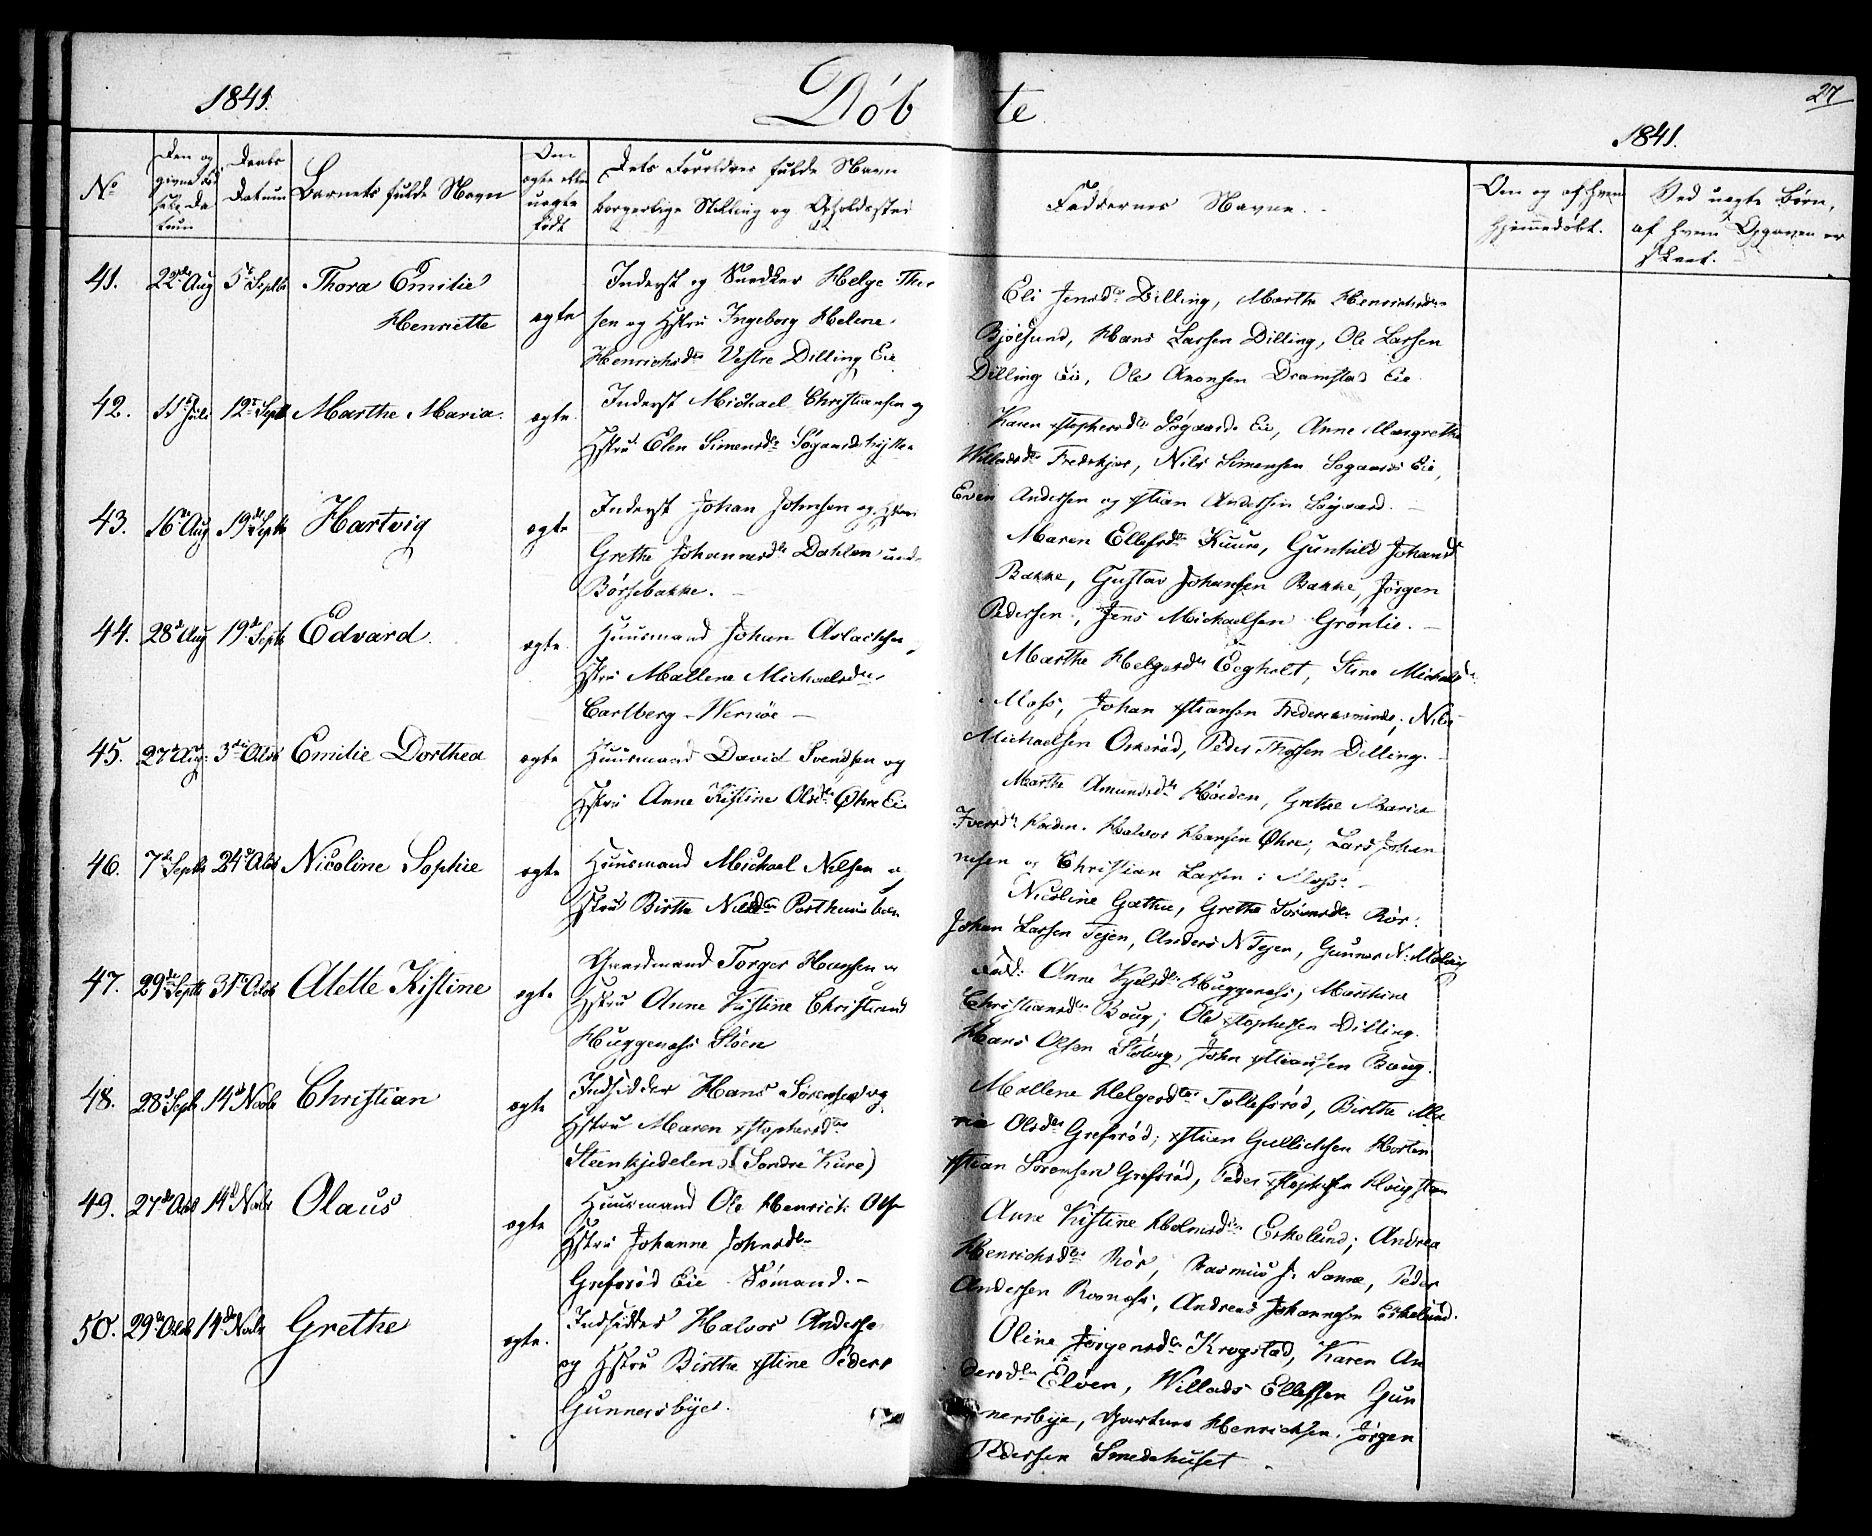 1841. Døbte 27
1841.
No
Den og
givne
Daabs
Datum
Barnets fulde Navn
Om
ægte eller
uægte
født
Dets Forældres fulde Navn
borgerlige Stilling og Opholdssted
Faddernes Navne.
Om og af hvem
hjemmedøbt.
Ved uægte Børn,
af hvem Opgaven er
skeet.
41. 22de Aug 5te Septb Thora Emilie
Henriette
ægte
Inderst og Snedker Helge Thor
sen og Hstru Ingeborg Helene
Henrichsdtr Vestre Dilling Eie
Eli Jensdtr Dilling, Marthe Henrichsdtr
Bjölsund, Hans Larsen Dilling, Ole Larsen
Dilling Eie, Ole Aronsen Dramstad Eie
42. 11te Juli 12te Septb Marthe Maria.
ægte.
Inderst Michael Christiansen og
Hstru Elen Simensdtr
Karen xstophersdtr Søgaards Eie, Anne Margrethe
Willadsdtr Fredskjær, Nils Simensen Sogaards Eie,
Even Andersen og xstian Andersen Søgaard.
43. 16de Aug 19de Septb Hartvig
ægte
Inderst Johan Johnsen og Hstru
Grethe Johannesdtr Dahlen und.
Börsebakke.
Maren Ellefsdtr Kuure, Gunhild Johansd
Bakke, Gustav Johansen Bakke, Jörgen
Pedersen, Jens Michaelsen Grönlie.
44. 28de Aug 19de Septb Edvard.
ægte.
Huusmand Johan Aslachsen,
Hstru Mallene Michaelsdtr
Carlberg - Wernöe
Marthe Helgesdtr Eegholt, Stine Michaelsdtr
Moss, Johan xstiansen Frederensminde, Nils
Michaelsen Oreröd, Peder Thorsen Dilling.
45. 27de Aug. 3die Octob Emilie Dorthea
ægte
Huusmand David Svendsen og
Hstru Anne Kistine Olsdtr Øhre Eie
Marthe Amundsdtr Höiden, Grethe Maria
Iversdtr Höiden. Halvor Hansen Øhre, Lars Johan
nesen og Christian Larsen i Moss.
46. 7de Septb 24de Octob Nicoline Sophie
ægte
Huusmand Michael Nilsen og
Hstru Birthe Nilsdtr
Nicoline Gæthe, Grethe Sörensdtr Rör.
Johan Larsen Tejen, Anders N Tejen, Gunner N.
47. 29de Septb 31te Octob Alette Kistine
ægte
Gaardmand Torger Hansen og
Hstru Anne Kistine Christiansd
Huggenæs Stöen
Fadd: Anne Kjelsdtr Huggenæs, Marthine
Christiansdtr Boug, Ole xstophersen Dilling.
Hans Olsen Stövig, John xstiansen Boug.
48. 28de Septb 14de Novbr Christian
ægte
Indsidder Hans Sörensen og
Hstru Maren xstophersdtr
Steenkjedelen (Söndre Kure)
Mallene Helgesdtr Tollefsröd, Birthe Ma
rie Olsdtr Grefsröd, xstian Gullichsen Horten
xstian Sörensen Grefsröd, Peder xstophersen
49. 27de Octob 14de Novbr Olaus
ægte
Huusmand Ole Henrich Olsen
Hstru Johanne Johnsdtr
Grefsröd Eie Sömand.
Anne Kistine Holmsdtr Eskelund, Andrea
Henrichsdtr Rör, Rasmus J. Sanne, Peder
Andersen Rosnæs, Andreas Johannesen Eskelund.
50. 29de Octob 14de Novbr Grethe
ægte.
Indsidder Halvor Andersen
og Hstru Birthe xstine Peders
Gunnersbye.
Oline Jörgensdtr Krogstad, Karen An
dersdtr Elven, Willads Ellefsen Gun
nersbye, Henrichsen, Jörgen
Pedersen Smedehuset